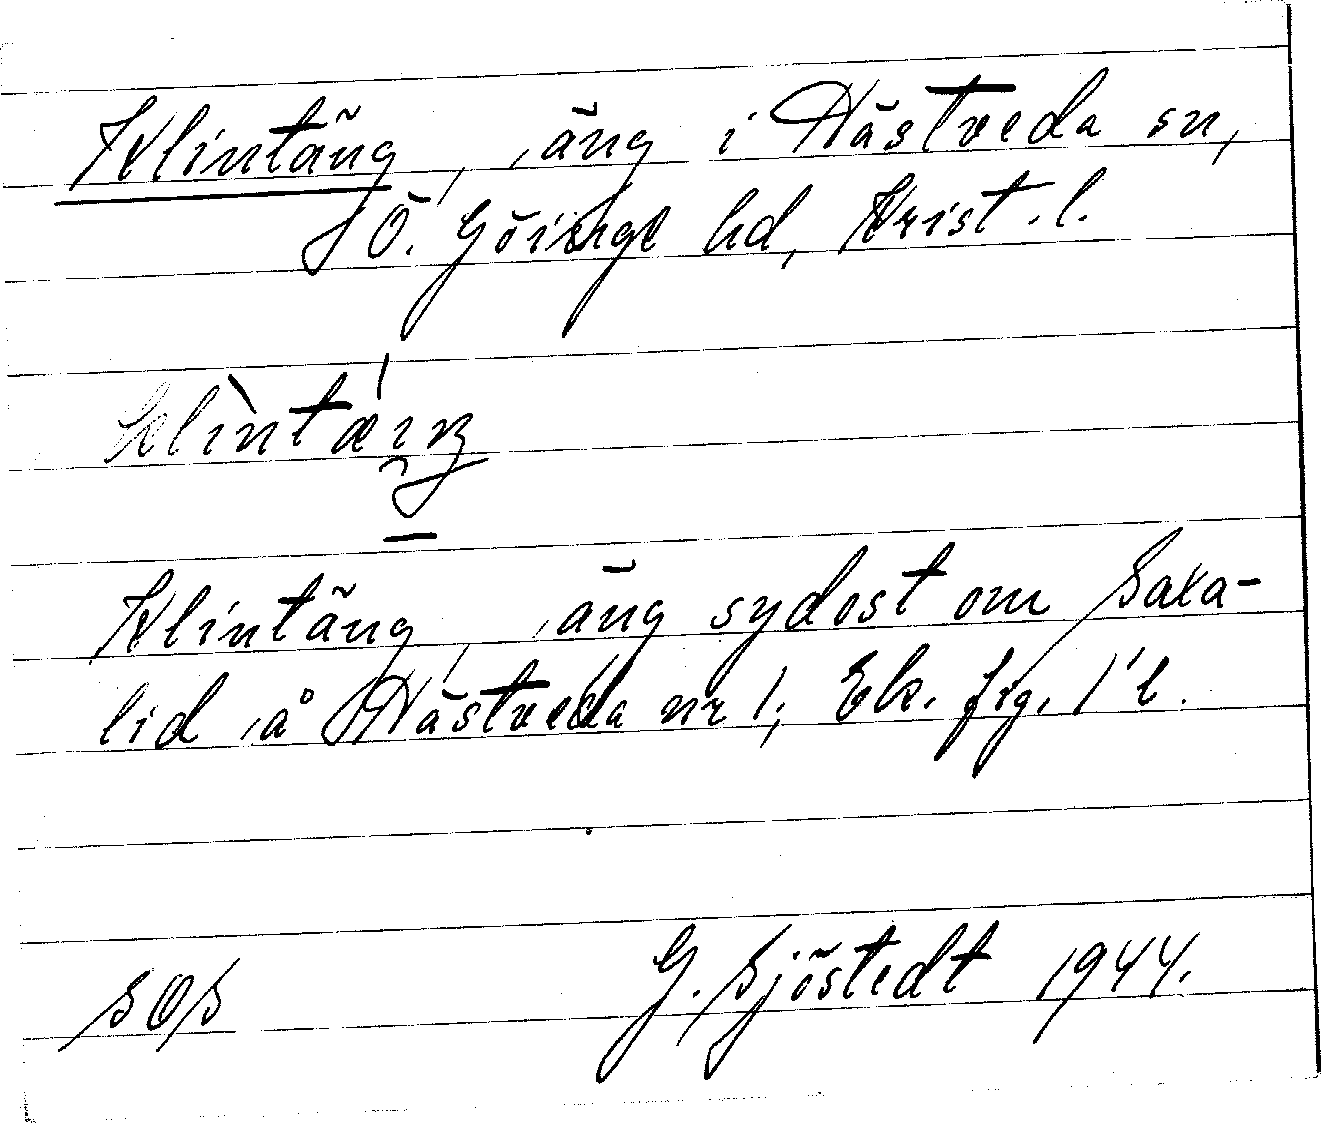 Klintäng, äng i Hästveda sn,
Ö. Göinge hd, Krist. l.
Klintäng, äng sydost om Saxa-
lid å Hästveda nr 1; Ek. fig. 1'l.
SOS G. Sjöstedt 1944.